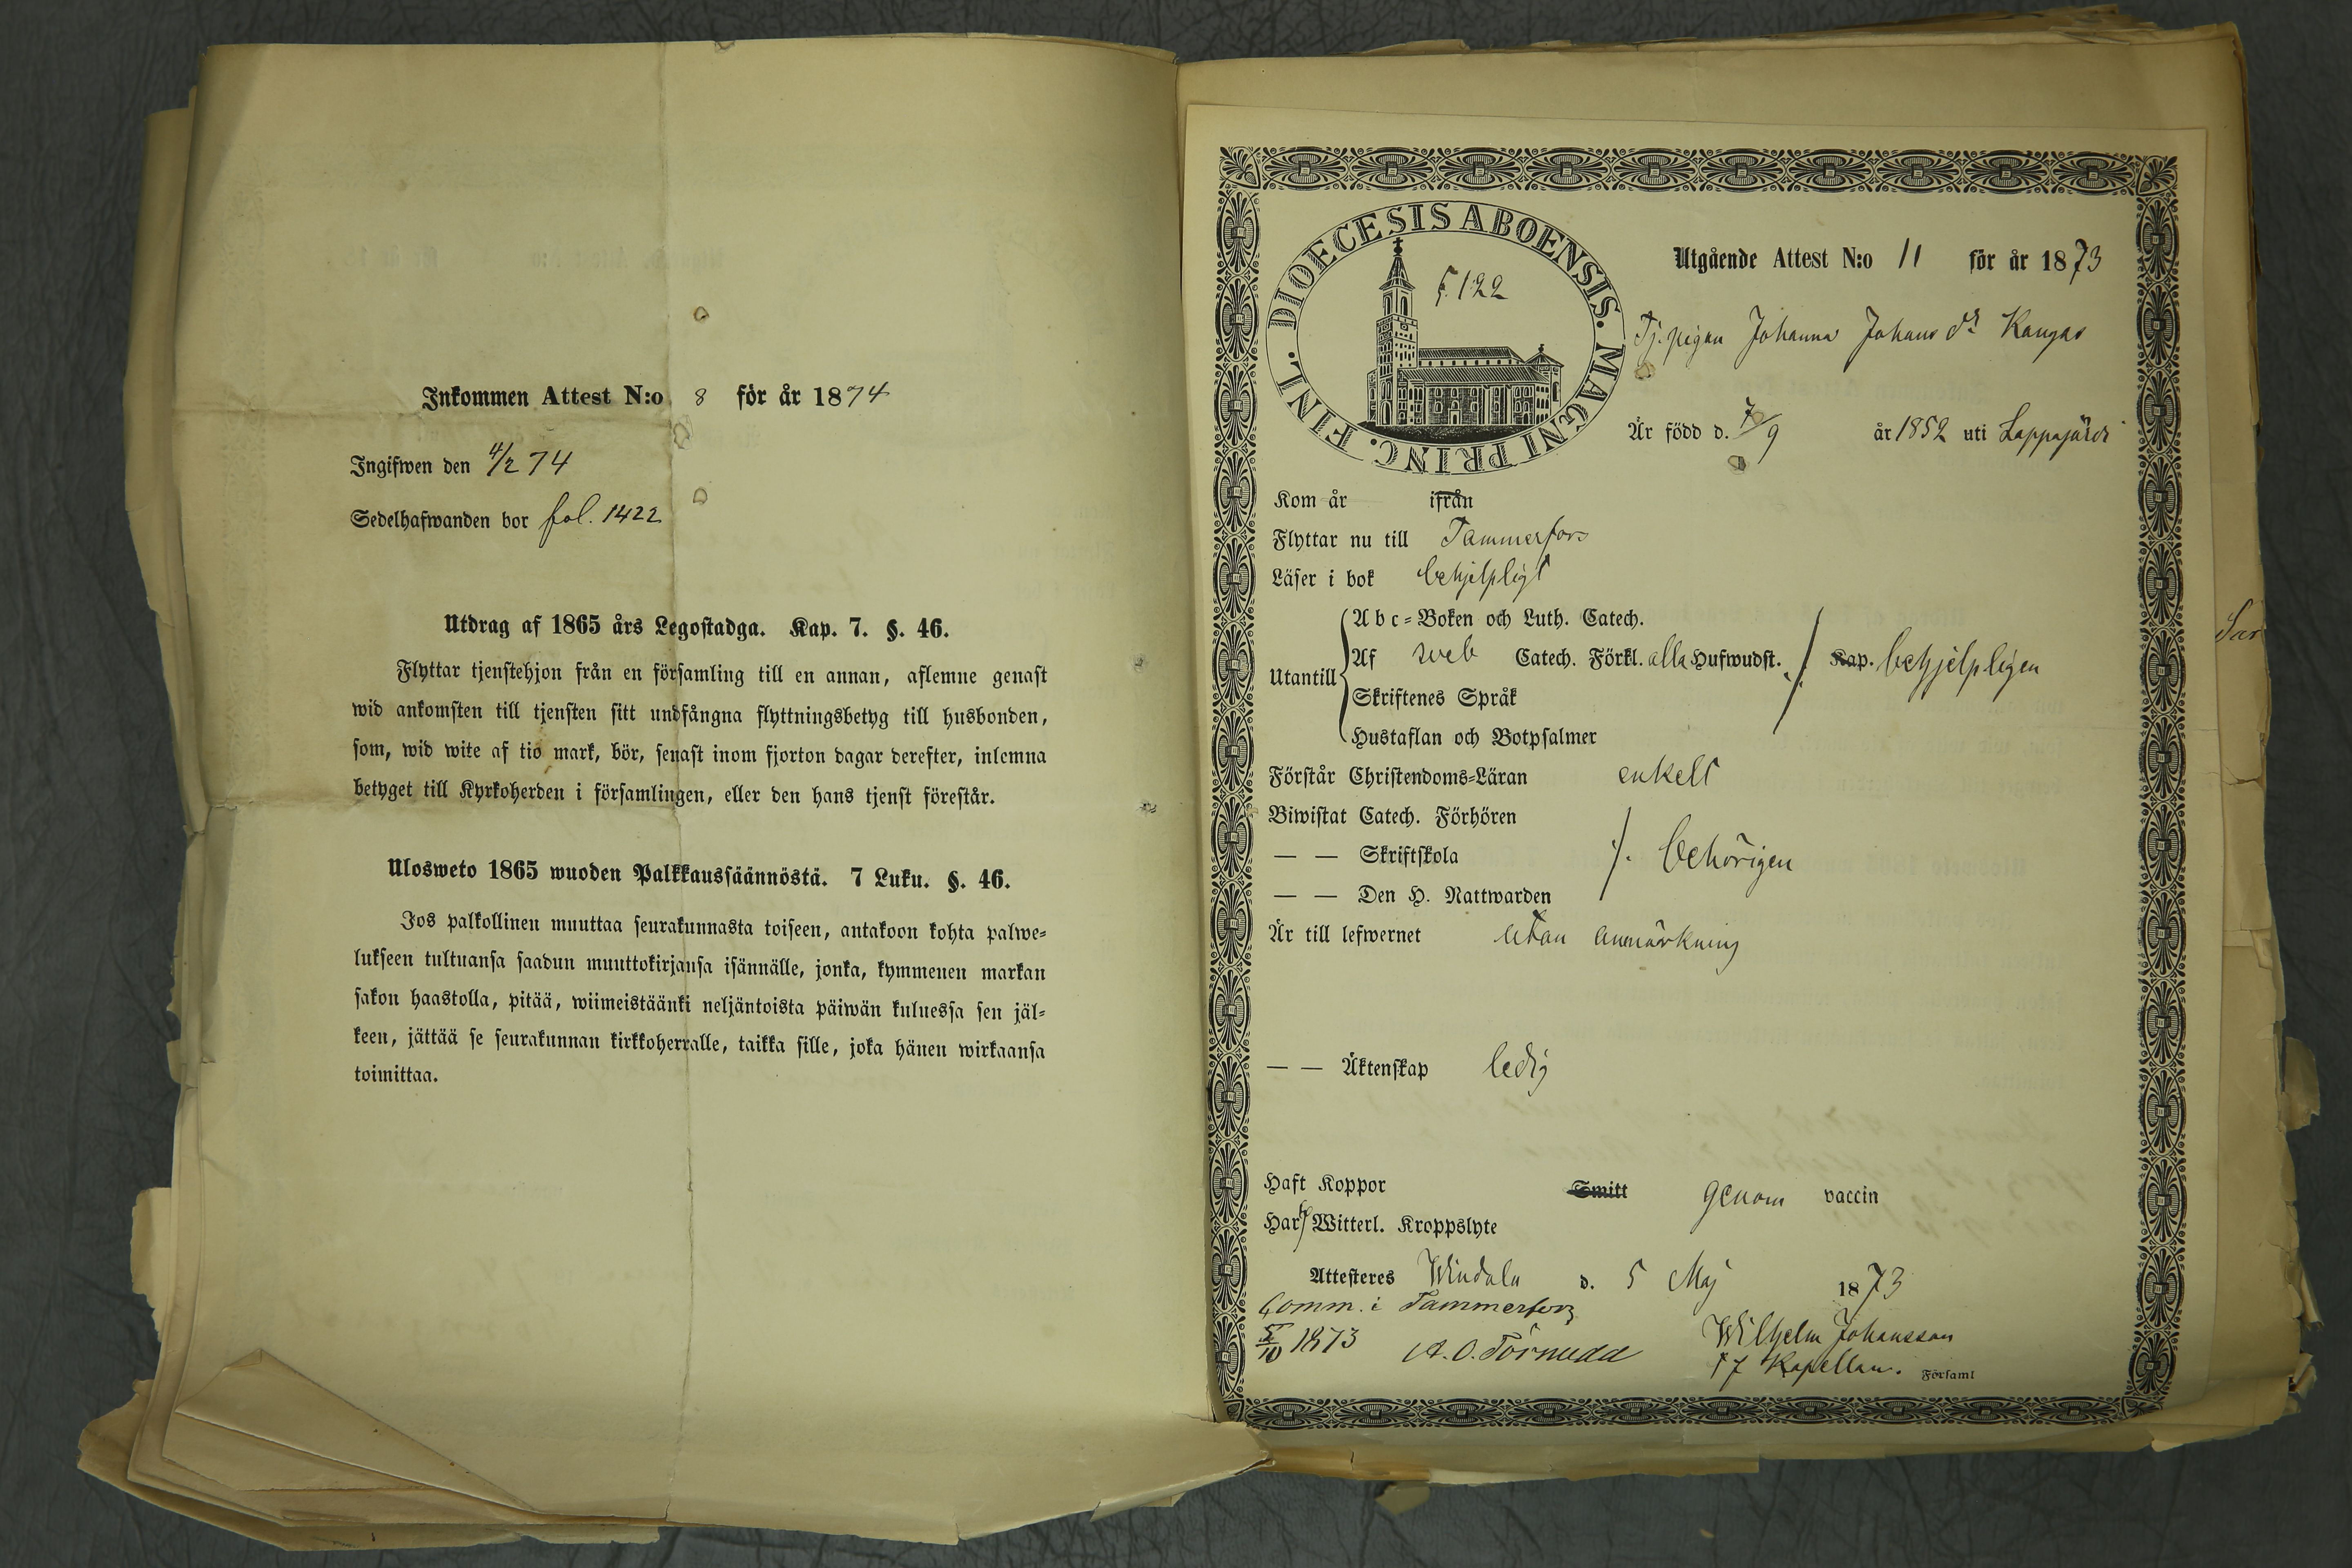 Inkommen Attest N:o 8 för år 1874
Ingifwen den 4/2 74
Sedelhafwanden bor fol. 1422
Utdrag af 1865 års Legostadga. Kap. 7. §. 46.
Flyttar tjenstehjon från en församling till en annan, aflemne genast
wid ankomsten till tjensten sitt undfångna flyttningsbetyg till husbonden,
som, wid wite af tio mark, bör, senast inom fjorton dagar derefter, inlemna
betyget till Kyrkoherden i församlingen, eller den hans tjenst förestår.
Ulosweto 1865 wuoden Palkkaussäännöstä. 7 Luku. §. 46.
Jos palkollinen muuttaa seurakunnasta toiseen, antakoon kohta palwe-
lukseen tultuansa saadun muuttokirjansa isännälle, jonka, kymmenen markan
sakon haastolla, pitää, wiimeistäänki neljäntoista päiwän kuluessa sen jäl-
keen, jättää se seurakunnan kirkkoherralle, taikka sille, joka hänen wirkaansa
toimittaa.
DIOECESIS ABOENSIS. MAGNI PRINC. FINL.
122
Utgående Attest N:o 11 för år 1873
Tj. pigan Johanna Johans dr Kangas
Är född d. 7/9 år 1852 uti Lappajärvi
Kom år ifrån
Flyttar nu till Tammerfors
Läser i bok behjelpligt
Utantill
Abc-Boken och Luth. Catech.
Af Sveb Catech. Förkl. alla Hufwudst. Kap. behjelpligen
Skriftenes Språk
Hustaflan och Botpsalmer
Förstår Christendoms-Läran enkelt
Biwistat Catech. Förhören
— — Skriftskola behörigen
— — Den H. Nattwarden
Är till lefwernet utan anmärkning
— — Äktenskap ledig
Haft Koppor Smitt genom vaccin
Har Witterl. Kroppslyte
Attesteres Windala d. 5 Maj 1873
Comm. i Tammerfors
5/10 1873 A. O. Törnudd
Wilhelm Johansson
Kapellan. Församl
Sar